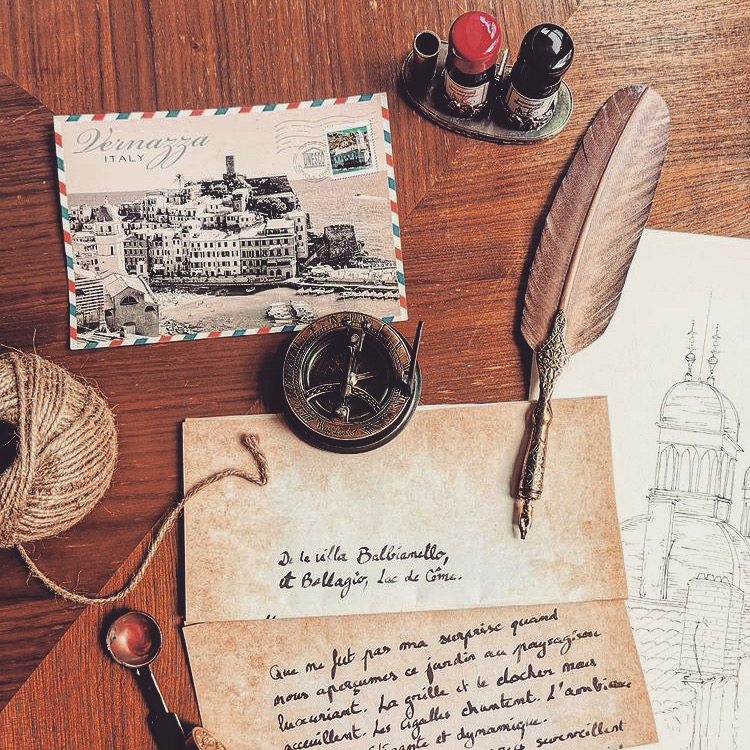 Vernazza
ITALY
UNESCO
De la villa Balbianello,
et Bellagio, Lac de Côme.
Que ne fut pas ma surprise quand
nous aperçumes ce jardin au paysagisme
luxuriant. La grille et le clocher nous
accueillent. Les cigales chantent. L'ambiance
et dynamique.
surveillent